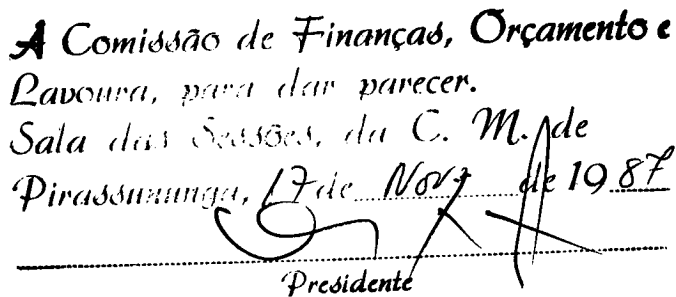 A Comissão de Finanças, Orçamento e
Lavoura, para dar parecer.
Sala das Sessões, da C. M. de
Pirassununga, 17 de Nov. de 1987
Presidente